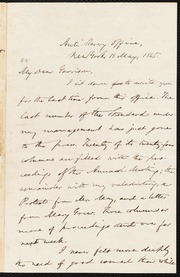 Anti Slavery Office,
New York 18 May, 1865
My Dear Garrison,
I sit down to write you
for the last time from this office. The
last number of the Standard under
my management has just gone
to the press. Twenty of its twenty four
columns are filled with the pro-
ceedings of the Annual Meeting, the
remainder with my valedictory, a
Protest from Mr. May, and a letter
from Mary Grew. Three columns or
more of proceedings went over for
next week.
I never felt more deeply
the need of good counsel than while